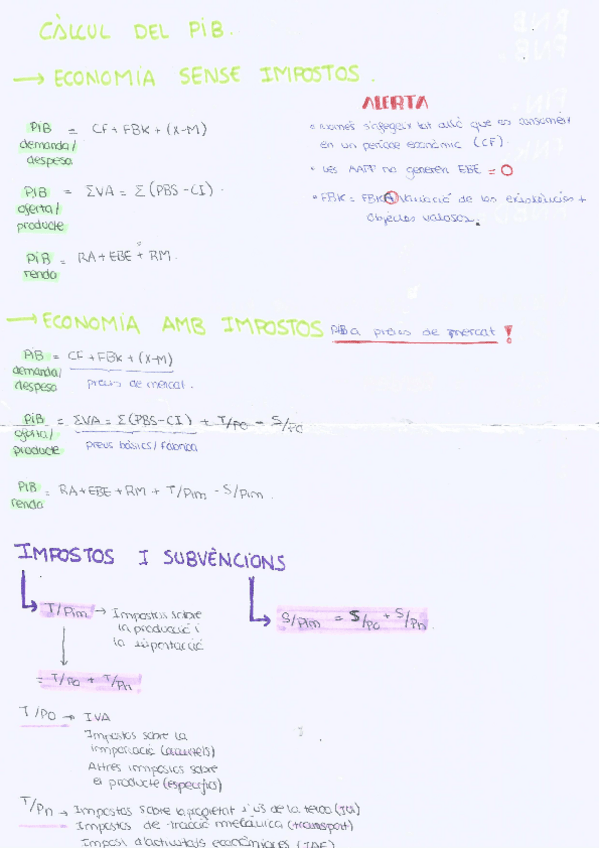 CÀLCUL DEL PIB.
→ ECONOMIA SENSE IMPOSTOS.
ALERTA
PIB demanda/ despesa = CF + FBK + (X-M)
• Només s'afegeix tot allò que es consumeix
en un període econòmic (CF).
• Les AAPP no generen EBE = O
PIB oferta/ producte = ΣVA = Σ(PBS - CI).
• FBK = FBKF + Variació de les existències +
Objectes valuosos.
PIB renda = RA + EBE + RM.
→ ECONOMIA AMB IMPOSTOS PIB a preus de mercat !
PIB demanda/ despesa = CF + FBK + (X-M)
preus de mercat.
PIB oferta/ producte = ΣVA = Σ(PBS - CI) + T/PO - S/PO
preus bàsics/fàbrica
PIB renda = RA + EBE + RM + T/Pim - S/Pim.
IMPOSTOS I SUBVENCIONS
T/Pim → Impostos sobre
la producció i
la importació
S/Pim = S/PO + S/Pn
= T/PO + T/Pn
T/PO → IVA
Impostos sobre la
importació (aranzels)
Altres impostos sobre
el producte (específics)
T/Pn → Impostos sobre la propietat i ús de la terra (IBI)
Impostos de tracció mecànica (transport)
Impost d'activitats econòmiques (IAE)